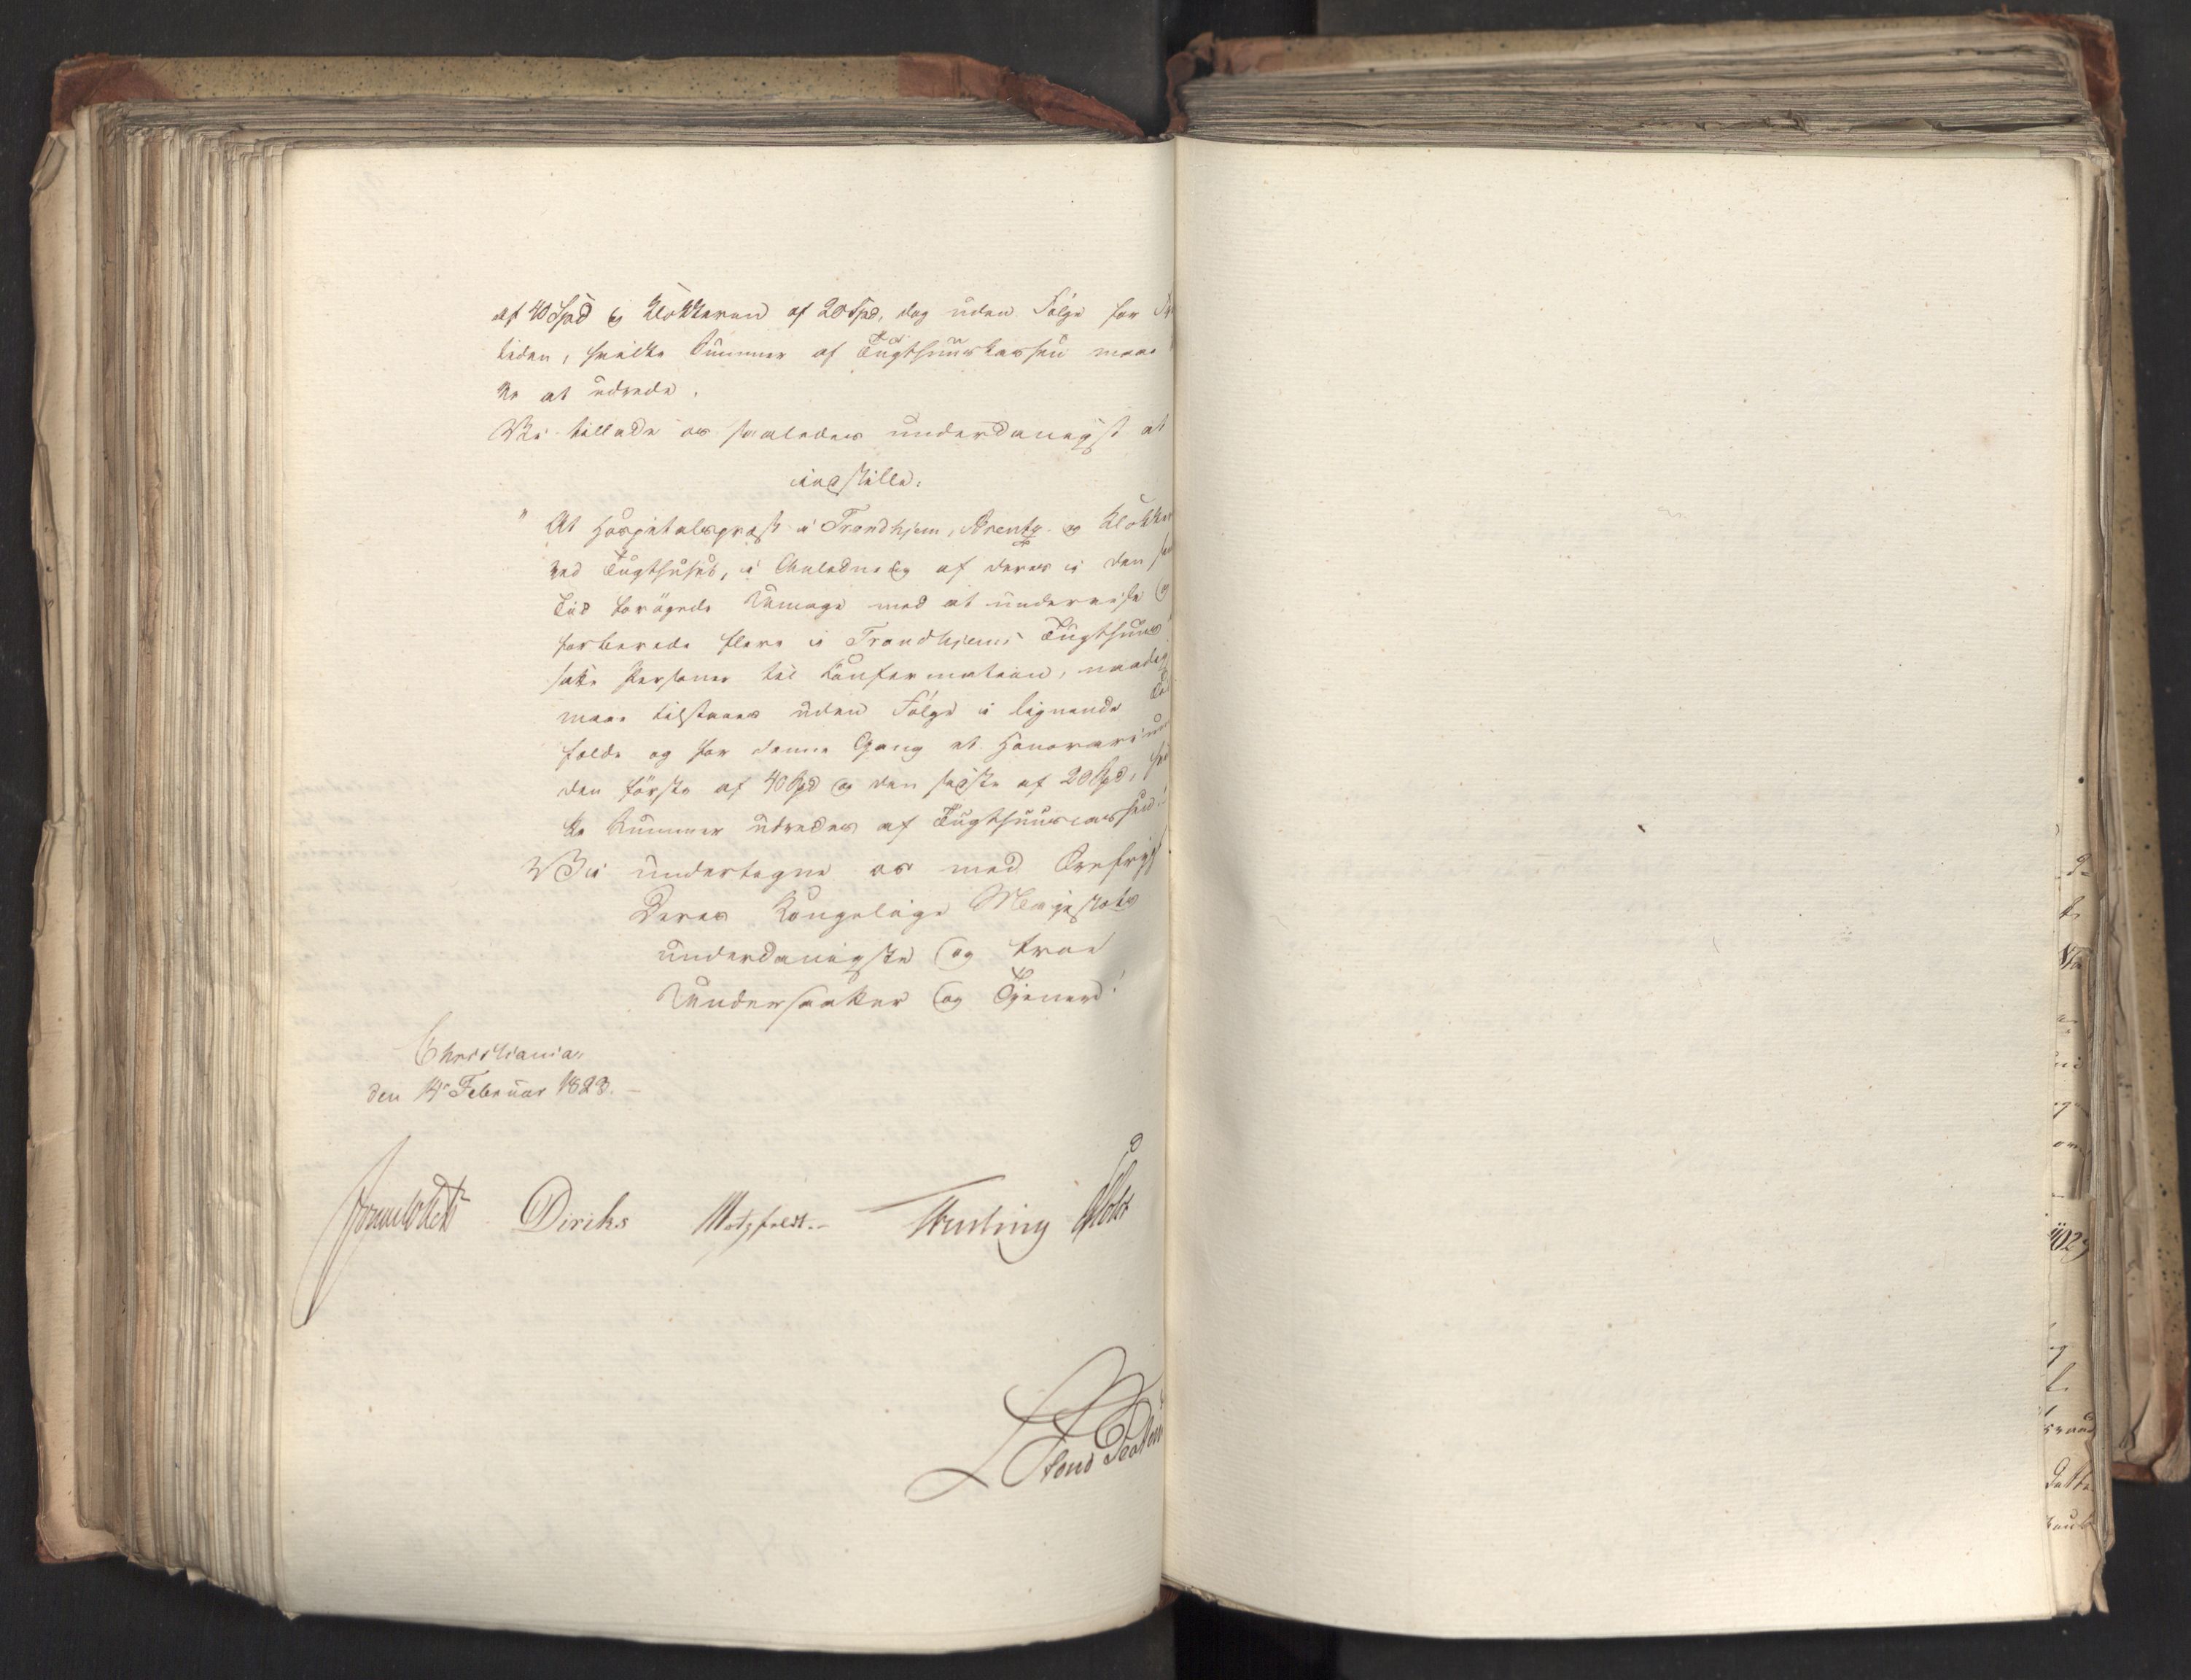 af 40 Spd og Klokkeren af 20 Spd, dog uden Følge for
tiden, hvilke Summer af Tugthuuskassen maae
ke at udrede.
Vi tillade os saaledes underdanigst at
indstille:
" At Hospitalspræst i Trondhjem, Arentz og Klokker
ved Tugthuset, i Anledning af deres i den
Tid forøgede Umage med at underviise og
forberede flere i Trondhjems Tugthuus
satte Personer til Confirmation, naadigst
maae tilstaaes uden Følge i lignende Til
fælde og for denne Gang et Honorarium
den første af 40 Spd og den sidste af 20 Spd, hvil
ke Summer udredes af Tugthuuscassen."
Vi undertegne os med Ærefrygt
Deres Kongelige Majestæts
underdanigste og troe
Undersaatter og Tjenere!
Christiania,
den 14de Februar 1823.
Sommerhielm Diriks Motzfeldt. Treschow Holst